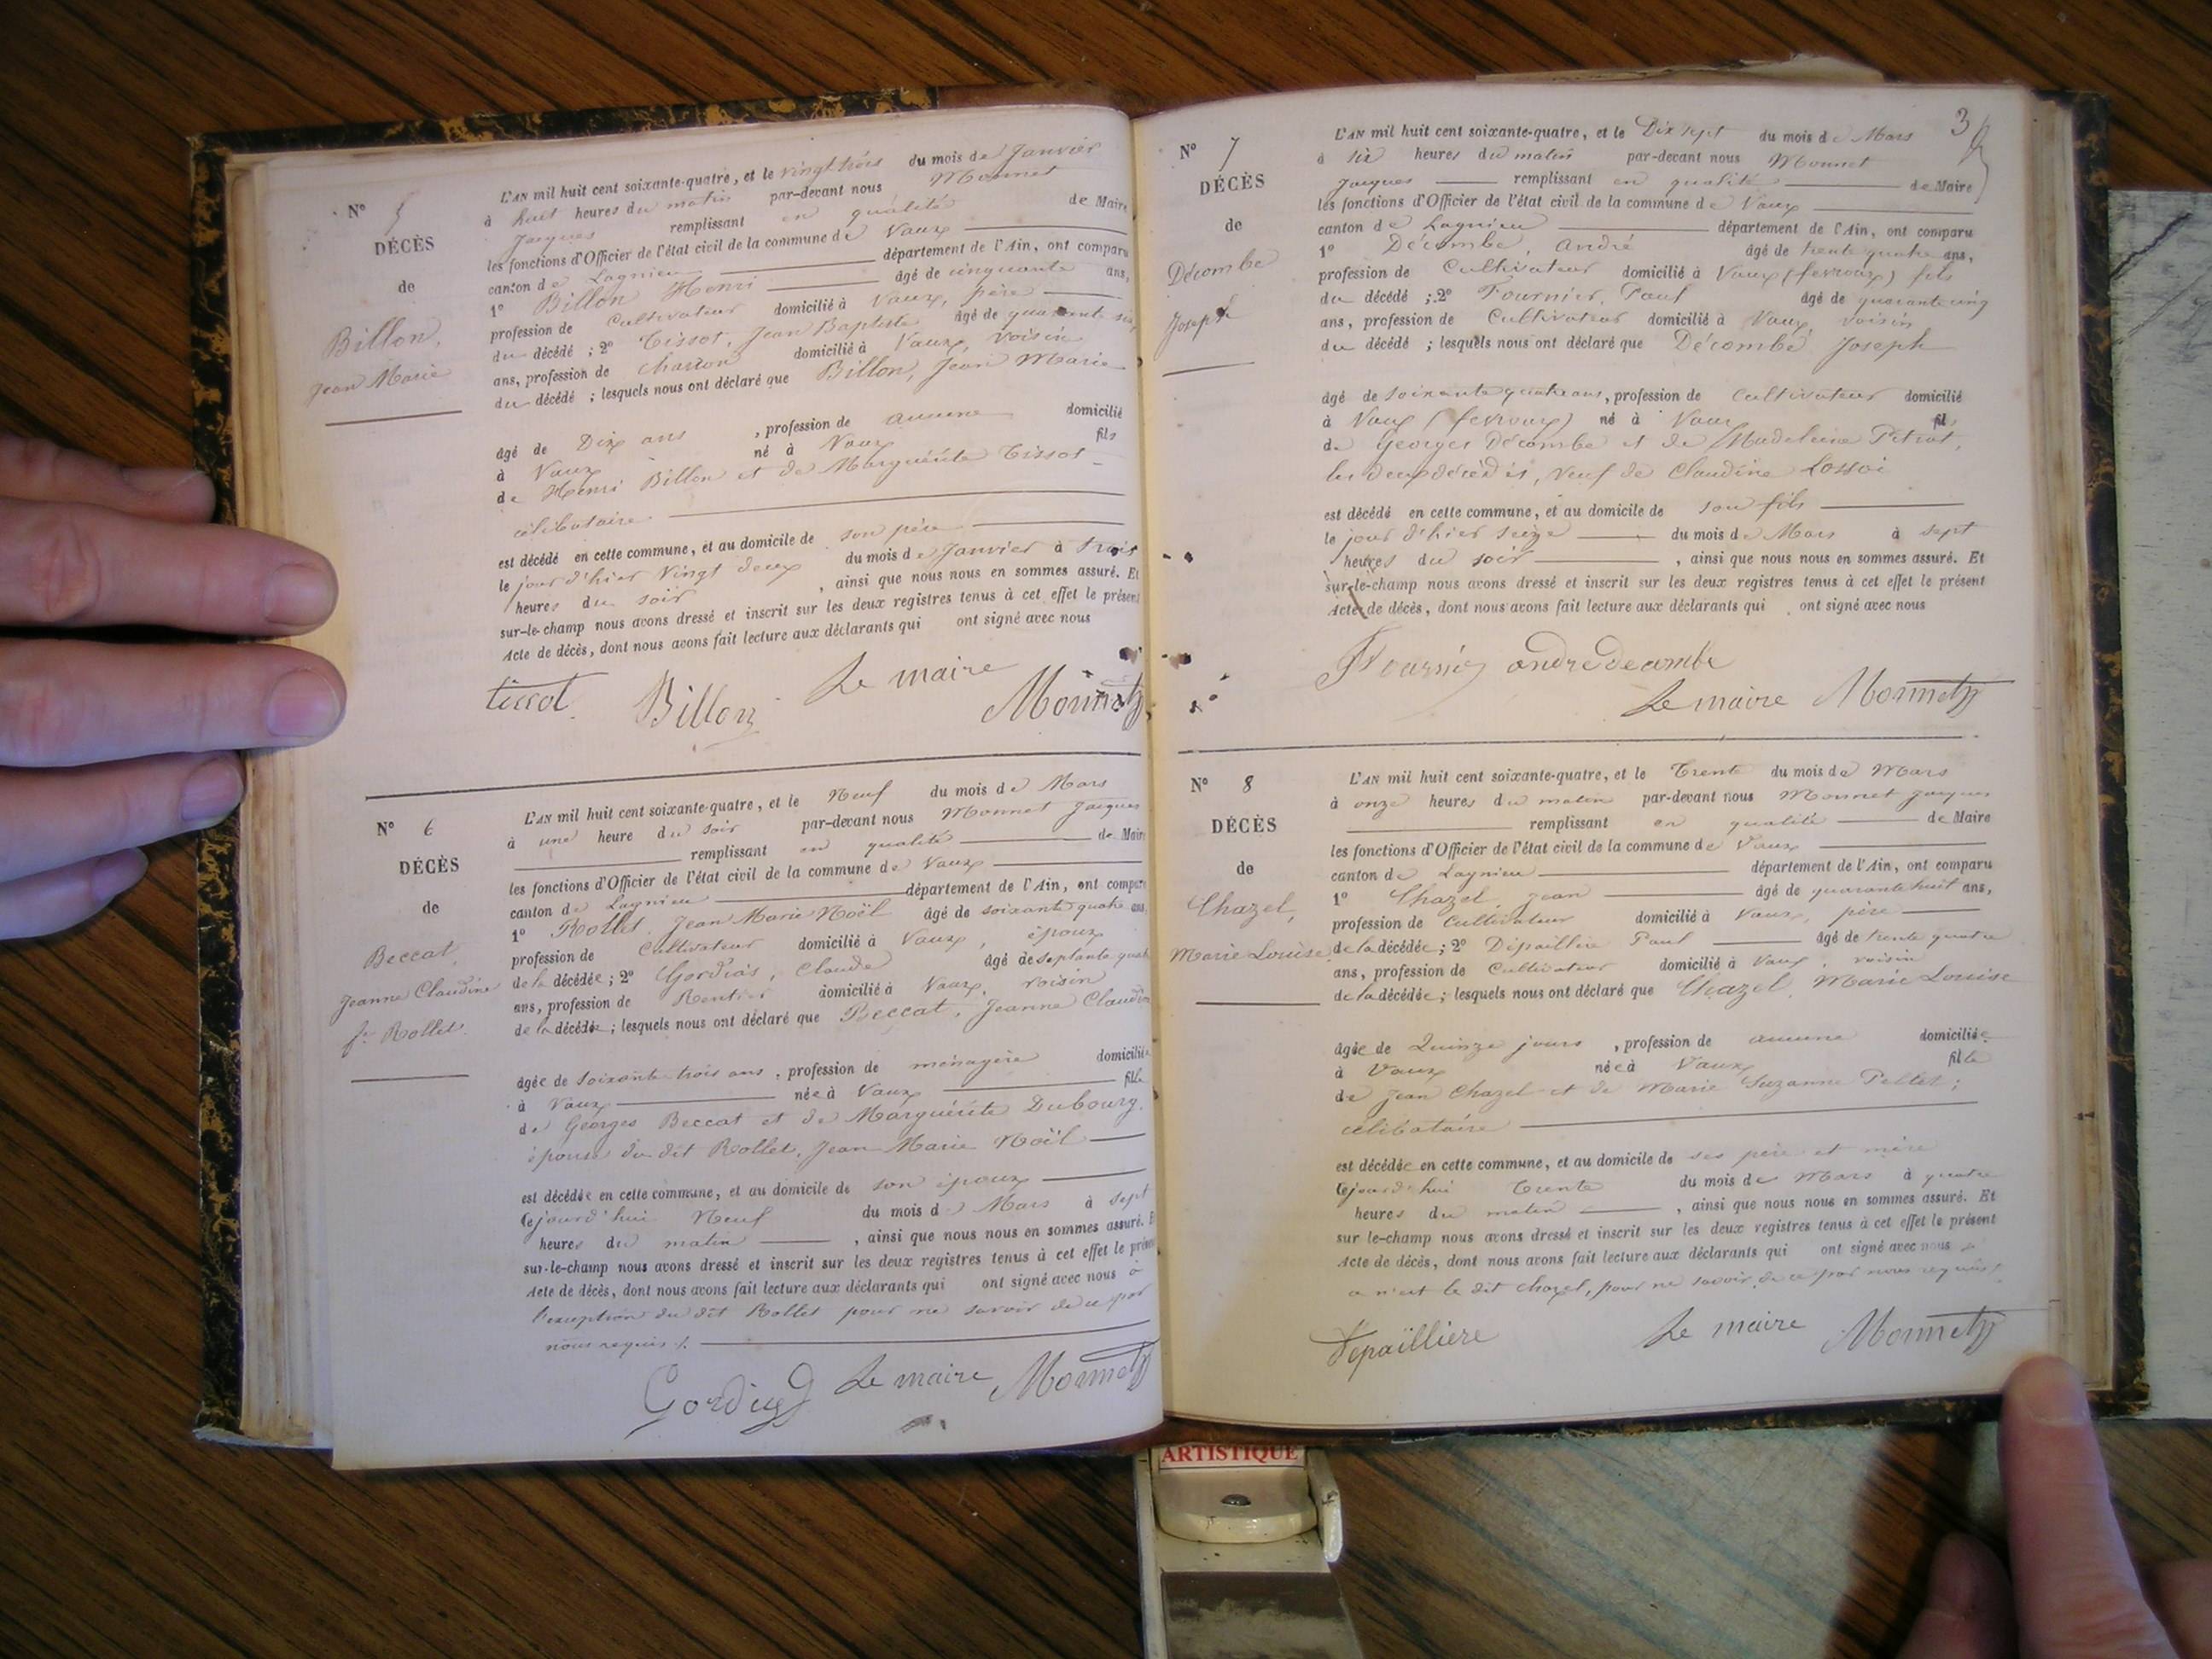 N° 5
DÉCÈS
de
Billon,
Jean Marie
L'AN mil huit cent soixante-quatre, et le vingt trois du mois de Janvier
à huit heures du matin par-devant nous Monnet
Jacques remplissant en qualité de Maire
les fonctions d'Officier de l'état civil de la commune de Vaux
canton de Lagnieu département de l'Ain, ont comparu
1° Billon Henri âgé de cinquante ans,
profession de Cultivateur domicilié à Vaux, père
du décédé ; 2° Tissot, Jean Baptiste âgé de quarante six
ans, profession de charron domicilié à Vaux, voisin
du décédé ; lesquels nous ont déclaré que Billon, Jean Marie
âgé de Dix ans , profession de aucune domicilié
à Vaux né à Vaux fils
de Henri Billon et de Marguérite Tissot
célibataire
est décédé en cette commune, et au domicile de son père
le jour d'hier vingt deux du mois de Janvier à trois
heures du soir , ainsi que nous nous en sommes assuré. Et
sur-le-champ nous avons dressé et inscrit sur les deux registres tenus à cet effet le présent
Acte de décès, dont nous avons fait lecture aux déclarants qui ont signé avec nous
tissot Billon Le maire Monnet
N° 6
DÉCÈS
de
Beccat,
Jeanne Claudine
fe Rollet
L'AN mil huit cent soixante-quatre, et le Neuf du mois de Mars
à une heure du soir par-devant nous Monnet Jacques
remplissant en qualité de Maire
les fonctions d'Officier de l'état civil de la commune de Vaux
canton de Lagnieu département de l'Ain, ont comparu
1° Rollet, Jean Marie Noël âgé de soixante quatre ans,
profession de Cultivateur domicilié à Vaux, époux
de la décédée ; 2° Gordias, Claude âgé de septante quatre
ans, profession de Rentier domicilié à Vaux, voisin
de la décédée ; lesquels nous ont déclaré que Beccat, Jeanne Claudine
âgée de soixante trois ans , profession de ménagère domiciliée
à Vaux née à Vaux fille
de Georges Beccat et de Marguérite Dubourg,
épouse du dit Rollet, Jean Marie Noël
est décédée en cette commune, et au domicile de son époux
cejourd'hui Neuf du mois de Mars à sept
heures du matin , ainsi que nous nous en sommes assuré. Et
sur-le-champ nous avons dressé et inscrit sur les deux registres tenus à cet effet le présent
Acte de décès, dont nous avons fait lecture aux déclarants qui ont signé avec nous à
l'exception du dit Rollet pour ne savoir de ce par
nous requis ./.
Gordias Le maire Monnet
3
N° 7
DÉCÈS
de
Décombe
Joseph
L'AN mil huit cent soixante-quatre, et le Dix sept du mois de Mars
à six heures du matin par-devant nous Monnet
Jacques remplissant en qualité de Maire
les fonctions d'Officier de l'état civil de la commune de Vaux
canton de Lagnieu département de l'Ain, ont comparu
1° Décombe, André âgé de trente quatre ans,
profession de Cultivateur domicilié à Vaux (fevroux) fils
du décédé ; 2° Fournier, Paul âgé de quarante cinq
ans, profession de Cultivateur domicilié à Vaux, voisin
du décédé ; lesquels nous ont déclaré que Décombe Joseph
âgé de soixante quatre ans, profession de Cultivateur domicilié
à Vaux (fevroux) né à Vaux fils
de Georges Décombe et de Madeleine Petrat,
les deux décédés, veuf de Claudine
est décédé en cette commune, et au domicile de son fils
le jour d'hier seize du mois de Mars à sept
heures du soir , ainsi que nous nous en sommes assuré. Et
sur-le-champ nous avons dressé et inscrit sur les deux registres tenus à cet effet le présent
Acte de décès, dont nous avons fait lecture aux déclarants qui ont signé avec nous
Fournier andre decombe
Le maire Monnet
N° 8
DÉCÈS
de
Chazel,
Marie Louise
L'AN mil huit cent soixante-quatre, et le Trente du mois de Mars
à onze heures du matin par-devant nous Monnet Jacques
remplissant en qualité de Maire
les fonctions d'Officier de l'état civil de la commune de Vaux
canton de Lagnieu département de l'Ain, ont comparu
1° Chazel, Jean âgé de quarante huit ans,
profession de Cultivateur domicilié à Vaux, père
de la décédée ; 2° Dépaillière Paul âgé de trente quatre
ans, profession de Cultivateur domicilié à Vaux, voisin
de la décédée ; lesquels nous ont déclaré que Chazel, Marie Louise
âgée de Quinze jours , profession de aucune domiciliée
à Vaux née à Vaux fille
de Jean Chazel et de Marie Suzanne Pellet ;
célibataire
est décédée en cette commune, et au domicile de ses père et mère
cejourd'hui Trente du mois de Mars à quatre
heures du matin , ainsi que nous nous en sommes assuré. Et
sur le-champ nous avons dressé et inscrit sur les deux registres tenus à cet effet le présent
Acte de décès, dont nous avons fait lecture aux déclarants qui ont signé avec nous
ce n'est le dit Chazel, pour ne savoir de ce par nous requis ./.
Depaillière Le maire Monnet
ARTISTIQUE